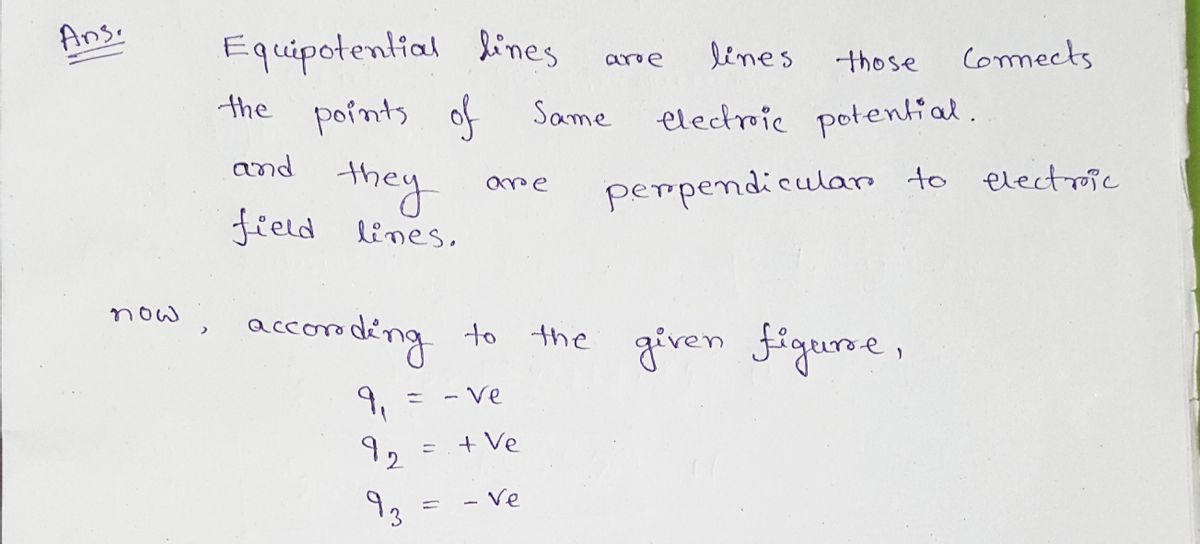 Ans.
Equipotential lines are lines those Connects
the points of Same electric potential.
and they are perpendicular to electric
field lines.
now, according to the given figure,
q₁ = -ve
q₂ = +ve
q₃ = -ve